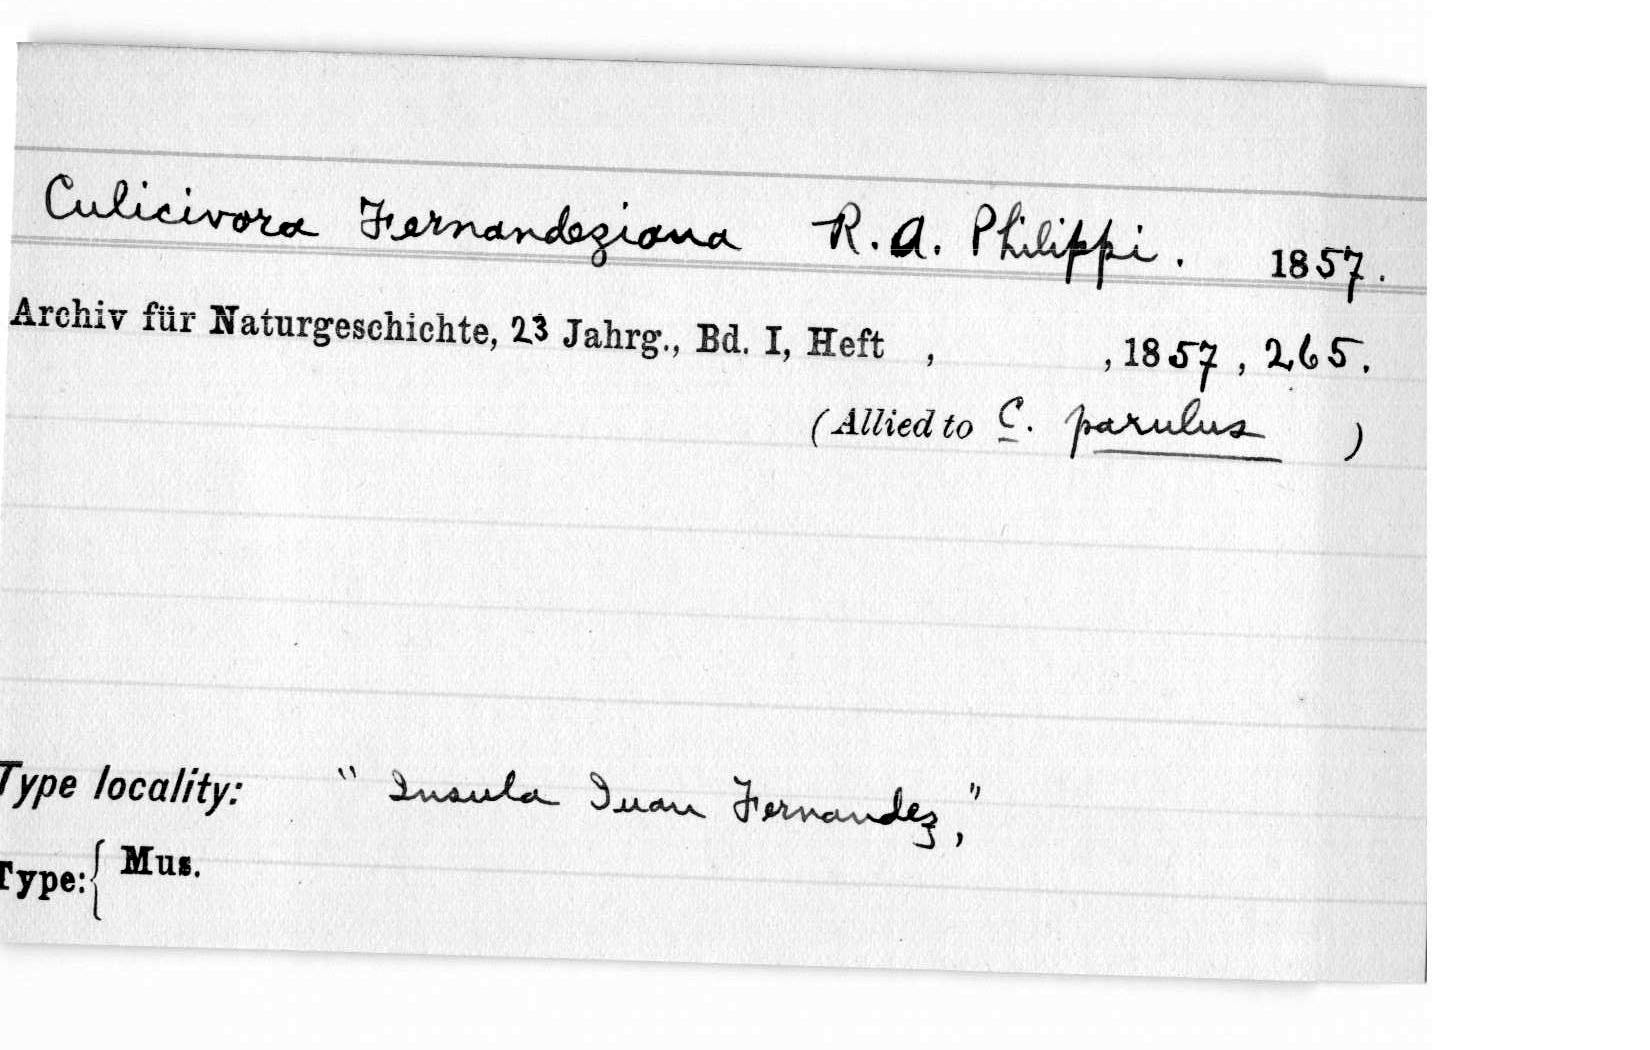 Culicivora Fernandeziana R. A. Philippi. 1857.
Archiv für Naturgeschichte, 23 Jahrg., Bd. I, Heft , , 1857, 265.
(Allied to C. parulus )
Type locality: "Insula Juan Fernandez,"
Type: { Mus.